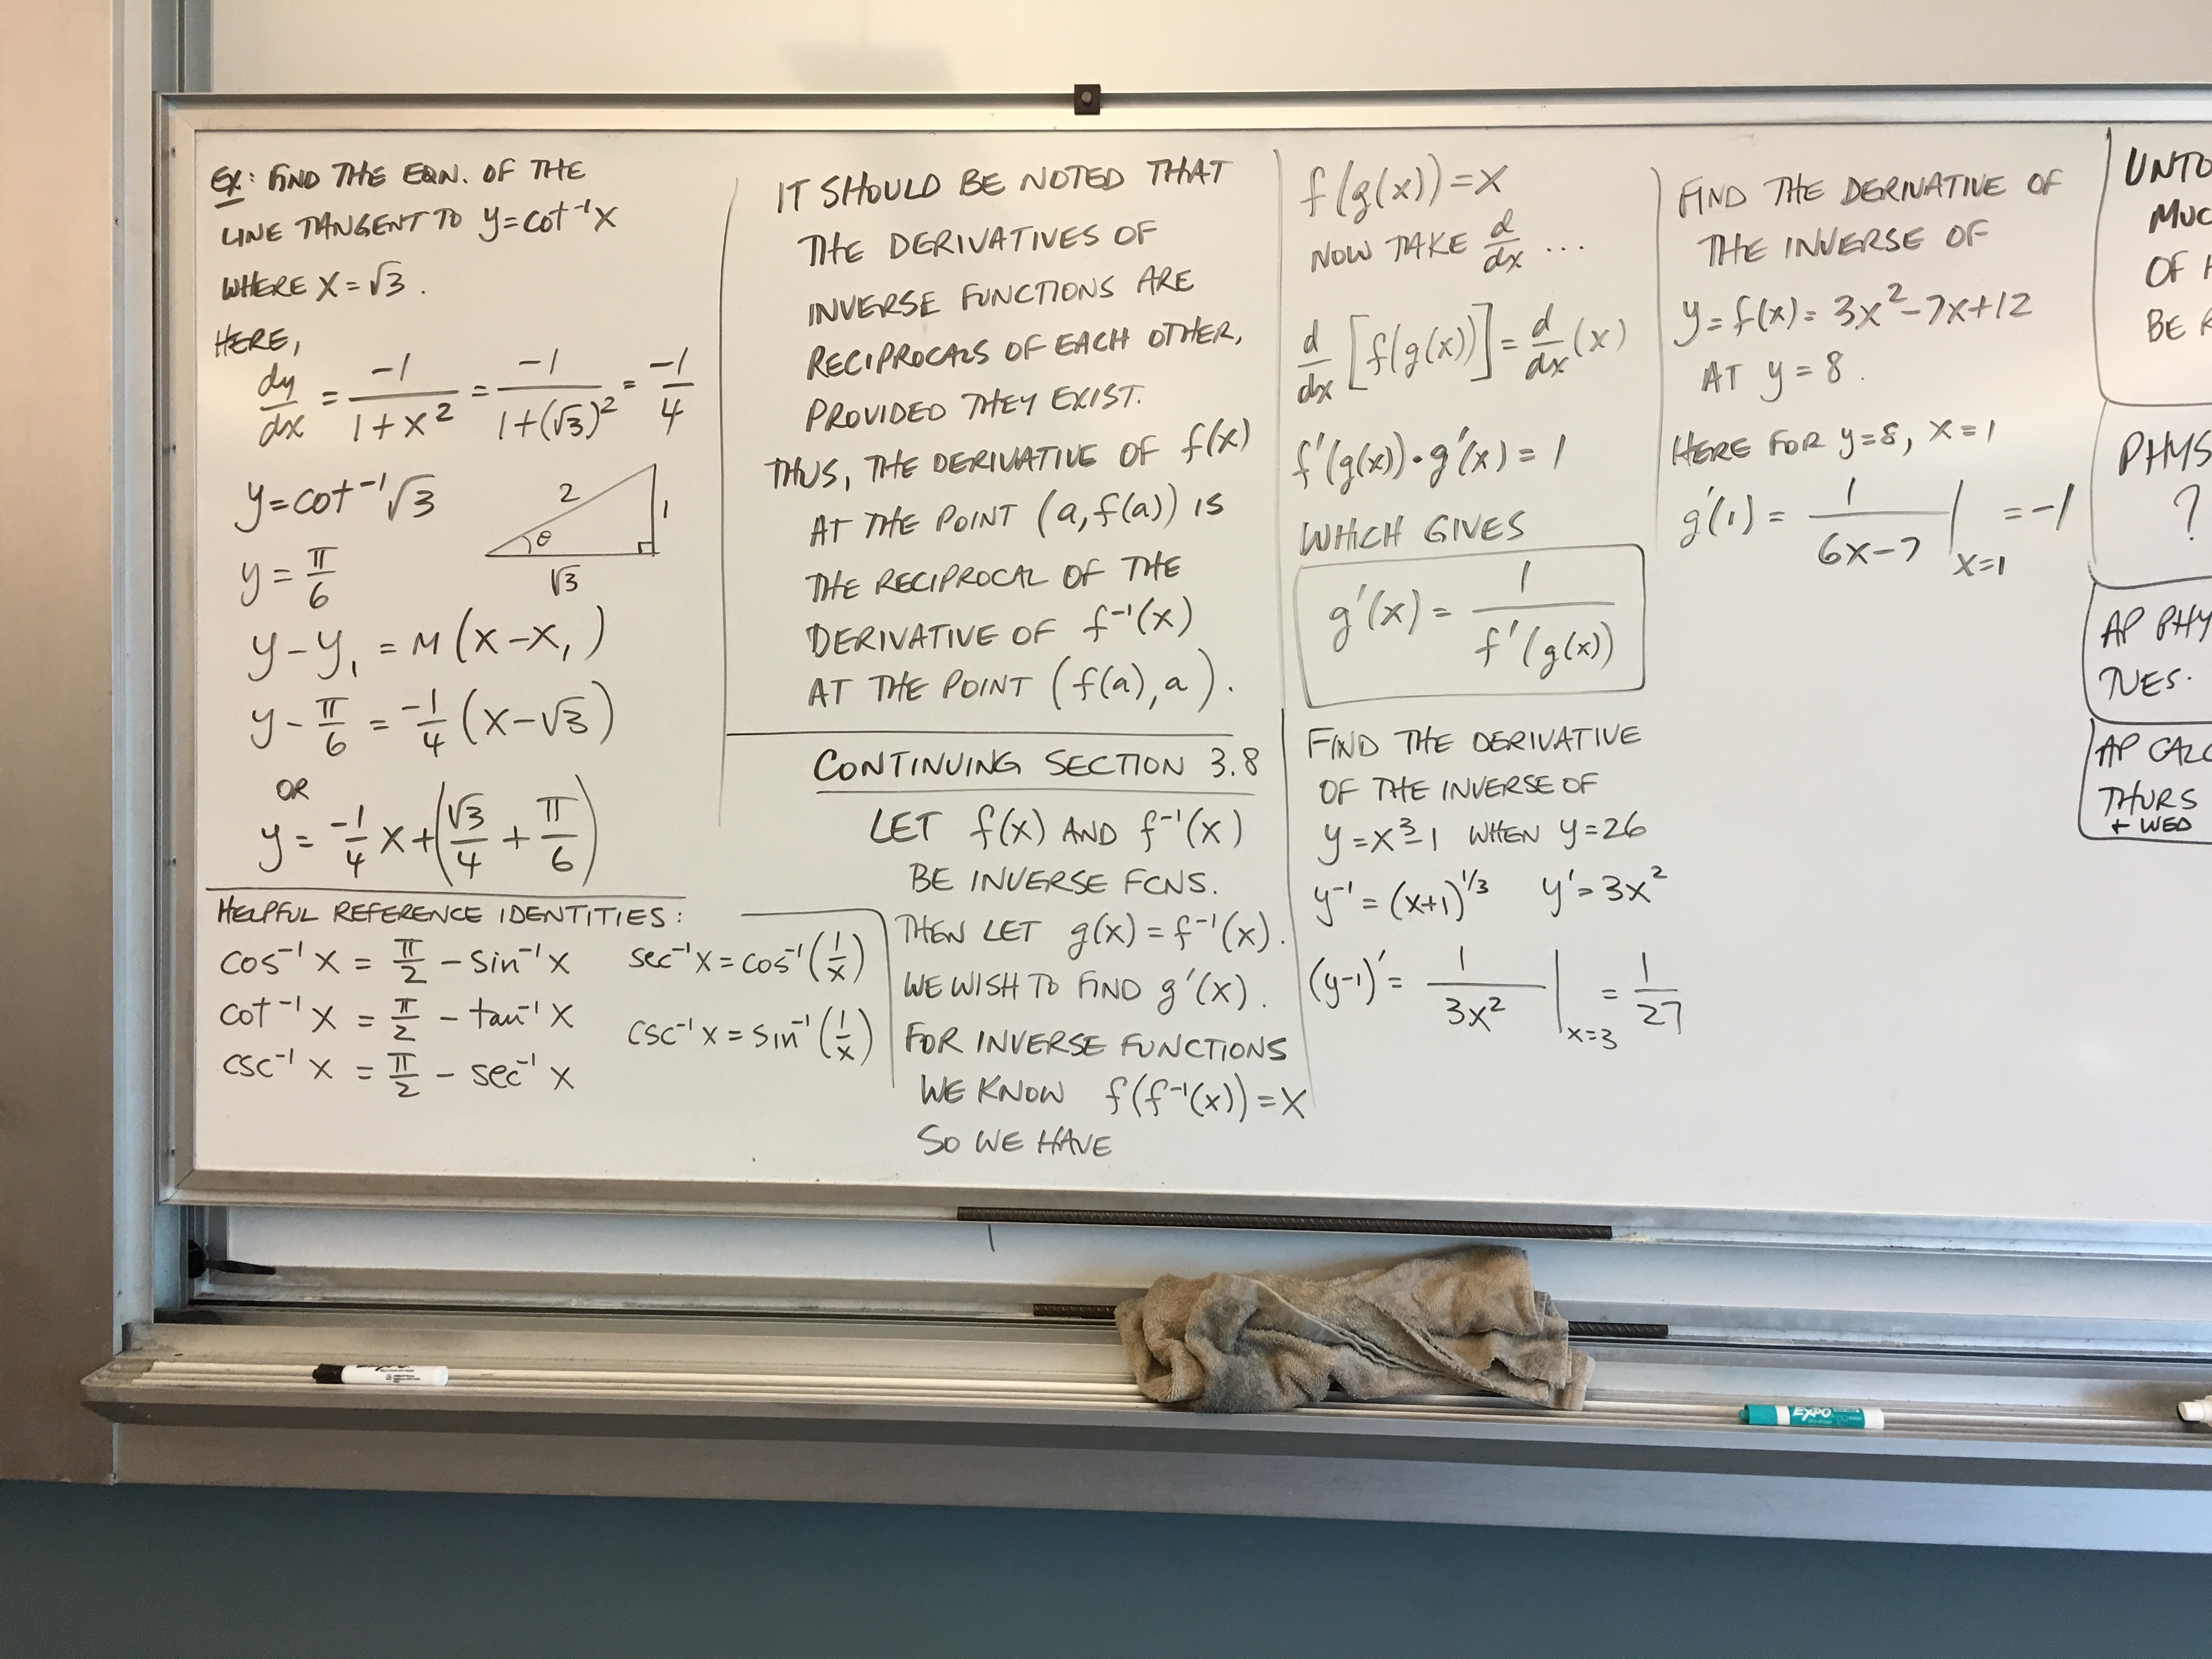 EX: FIND THE EQN. OF THE
LINE TANGENT TO y=cot⁻¹x
WHERE x=√3.
HERE,
dy/dx = -1/(1+x²) = -1/(1+(√3)²) = -1/4
y=cot⁻¹√3
y = π/6
2
1
θ
√3
y-y₁ = M(x-x₁)
y-π/6 = -1/4 (x-√3)
OR
y = -1/4 x+(√3/4 + π/6)
HELPFUL REFERENCE IDENTITIES:
cos⁻¹x = π/2 - sin⁻¹x
cot⁻¹x = π/2 - tan⁻¹x
csc⁻¹x = π/2 - sec⁻¹x
sec⁻¹x = cos⁻¹(1/x)
csc⁻¹x = sin⁻¹(1/x)
IT SHOULD BE NOTED THAT
THE DERIVATIVES OF
INVERSE FUNCTIONS ARE
RECIPROCALS OF EACH OTHER,
PROVIDED THEY EXIST.
THUS, THE DERIVATIVE OF f(x)
AT THE POINT (a,f(a)) IS
THE RECIPROCAL OF THE
DERIVATIVE OF f⁻¹(x)
AT THE POINT (f(a),a).
CONTINUING SECTION 3.8
LET f(x) AND f⁻¹(x)
BE INVERSE FCNS.
THEN LET g(x) = f⁻¹(x).
WE WISH TO FIND g'(x).
FOR INVERSE FUNCTIONS
WE KNOW f(f⁻¹(x))=x
SO WE HAVE
f(g(x))=x
NOW TAKE d/dx ...
d/dx [f(g(x))] = d/dx (x)
f'(g(x))·g'(x) = 1
WHICH GIVES
g'(x) = 1/f'(g(x))
FIND THE DERIVATIVE
OF THE INVERSE OF
y=x³-1 WHEN y=26
y⁻¹ = (x+1)^1/3 y'=3x²
(y-1)' = 1/3x² |x=3 = 1/27
FIND THE DERIVATIVE OF
THE INVERSE OF
y=f(x)=3x²-7x+12
AT y=8.
HERE FOR y=8, x=1
g'(1) = 1/(6x-7) |x=1 = -1
UNTO
MUC
OF
BE
PHYS
?
AP PHY
TUES.
AP CALC
THURS
+ WED
EXPO
EXPO